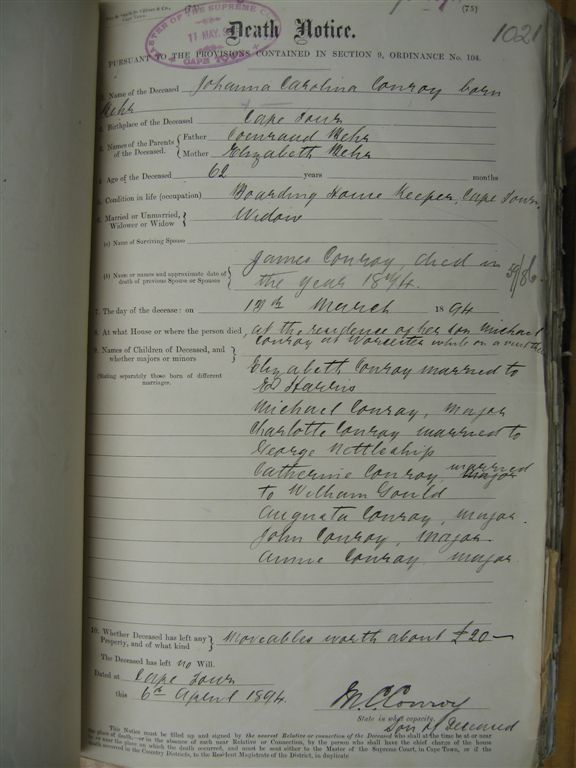 (75)
1021
MASTER OF THE SUPREME CO
11 MAY
CAPE TOWN
Death Notice.
PURSUANT TO THE PROVISIONS CONTAINED IN SECTION 9, ORDINANCE No. 104.
1. Name of the Deceased Johanna Carolina Conroy born
Behr
2. Birthplace of the Deceased Cape Town
3. Names of the Parents of the Deceased. { Father Coenraad Behr
Mother Elizabeth Behr
4. Age of the Deceased 62 years months
5. Condition in life (occupation) Boarding House Keeper, Cape Town.
6. Married or Unmarried, Widower or Widow } Widow
(a) Name of Surviving Spouse
(b) Name or names and approximate date of death of previous Spouse or Spouses } James Conroy died in
the year 1874.
7. The day of the decease: on 12th March 1894
8. At what House or where the person died, at the residence of her son Michael
Conroy at Worcester while on a visit there
9. Names of Children of Deceased, and whether majors or minors }
(Stating separately those born of different marriages.
Elizabeth Conroy married to
Ed Harris
Michael Conroy, Major
Charlotte Conroy married to
George Nettleship
Catherine Conroy, married
to William Gould
Augusta Conroy, major.
John Conroy, Major
Annie Conroy major
10. Whether Deceased has left any Property, and of what kind } Moveables worth about £20—
The Deceased has left no Will.
Dated at Cape Town
this 6th April 1894.
M C Conroy
State in what capacity.
Son of Deceased
This Notice must be filled up and signed by the nearest Relative or connection of the Deceased who shall at the time be at or near
the place of death,—or in the absence of such near Relative or Connection, by the person who shall have the chief charge of the house
death occurred in the Country Districts, to the Resident Magistrate of the District, in duplicate